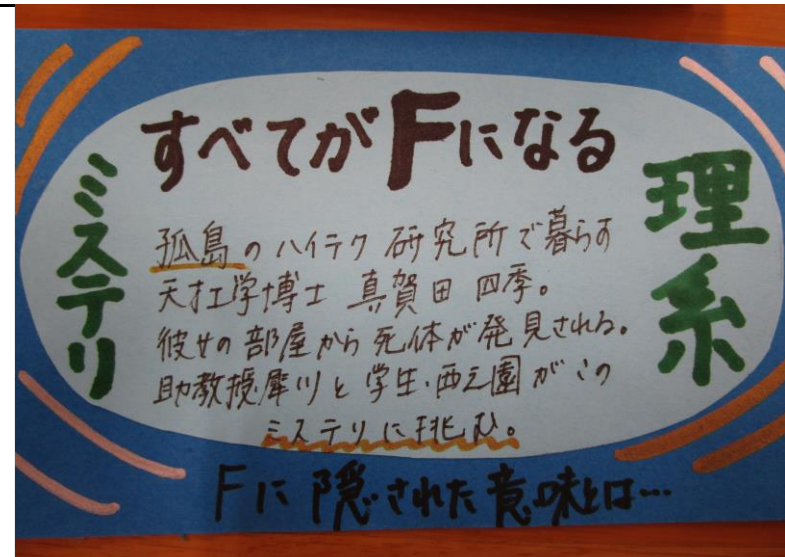 すべてがFになる
理系
ミステリ
孤島のハイテク研究所で暮らす
天才工学博士 真賀田四季。
彼女の部屋から死体が発見される。
助教授犀川と学生・西之園がこの
ミステリに挑む。
Fに隠された意味とは…